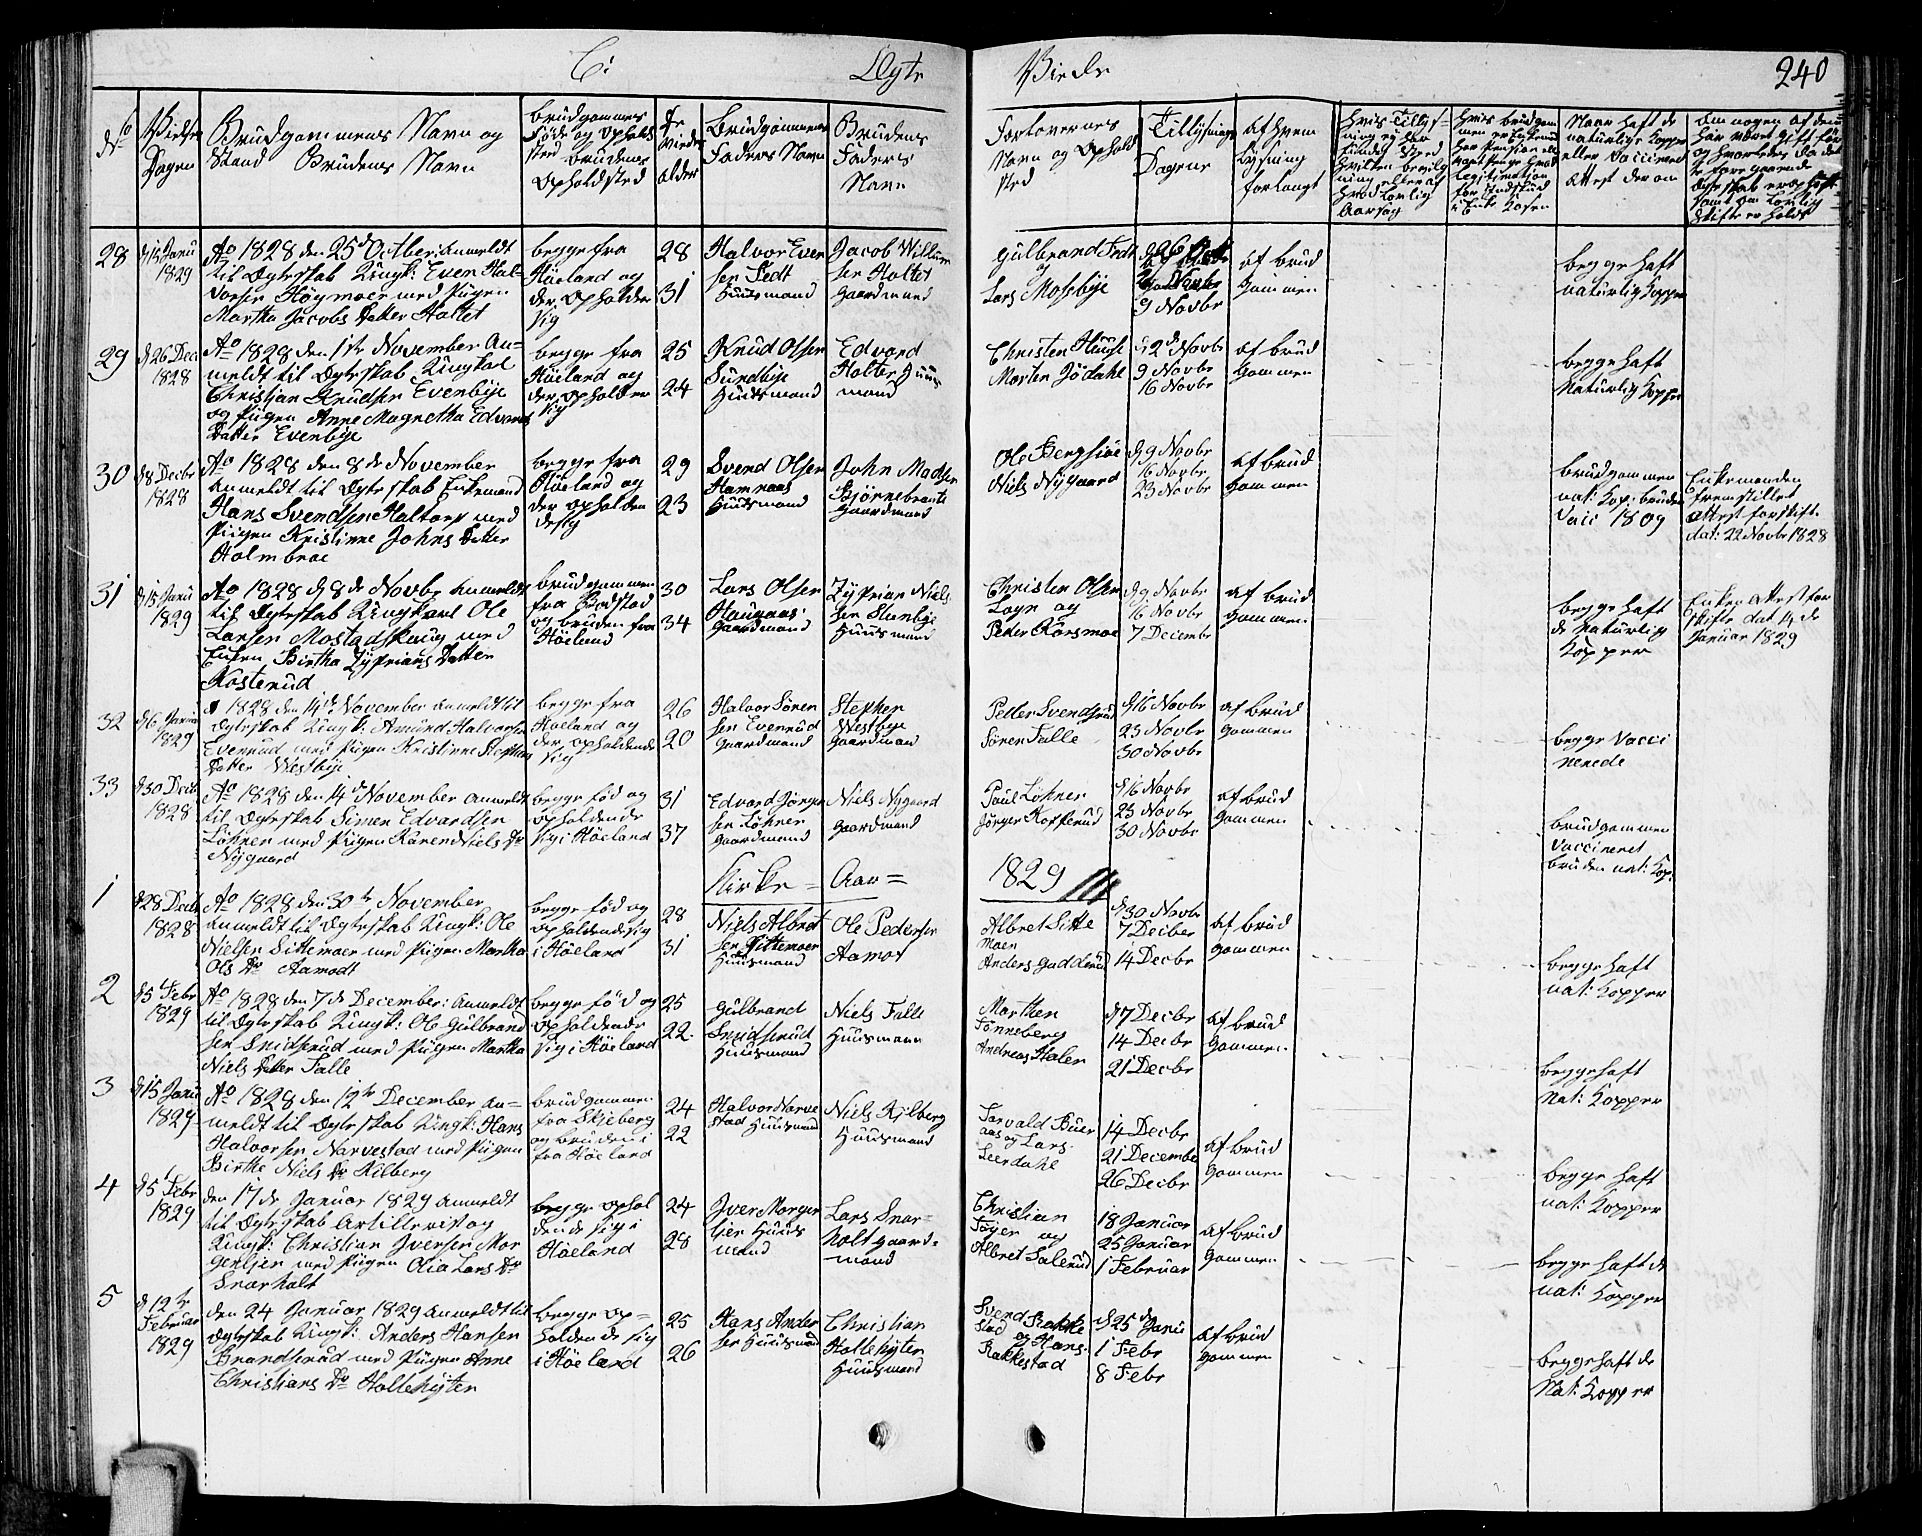 C:
Ægte
Viede
240
No
Vielses Dagen
Brudgommens Navn og
Stand Brudens Navn
brudgommens
Føde og Opholds
sted brudens
Opholdsted
De
viedes
alder
Brudgommens
Faders Navn
Brudens
Faders
Navn
Forlovernes
Navn og Ophold
sted
Tillysnings
Dagene
af hvem
lysning
forlangt
28
d 15 Janu
1829
Ao 1828 den 25d Octber: Anmeldt
til Ægteskab Ungk: Even Hal-
vorsen Høgmoer med Pigen
Martha Jacobs Datter Holtet
begge fra
Høeland og
der opholder
sig
28
31
Halvor Even
sen Fedt
Huusmand
Jacob Willum
sen Holtet
Gaardmand
Gulbrand Fedt
og
Lars Mosebye
9 Novbr
af brud
gommen
begge haft
naturlig Kopper
29
d 26 Dec
1828
Ao 1828 den 1ste November An-
meldt til Ægteskab Ungkal
Christian Knudsen Evenbye
og Pigen Anne Magretha Edvards
Datter Evenbye
begge fra
Høeland og
der opholden
sig
25
24
Knud Olsen
Sundbye
Huusmand
Edvard
Holter Huus
mand
Christen Hauge
Morten Jødahl
d 2d Novbr
9 Novbr
16 Novbr
af brud
gommen
begge haft
Naturlig Kopper
30
d 8 Decbr
1828
Ao 1828 den 8de November
Anmeldt til Ægteskab Enkemand
Hans Svendsen Haltorp med
Pigen Kristinne Johns Datter
Holmbroe
begge fra
Høeland og
der opholden
desig
29
23
Svend Olsen
Hamnaas
Huusmand
John Madsen
Bjørnebrante
Gaardmand
Ole Bergsiøe
Niels Nygaard
d 9 Novbr
16 Novbr
23 Novbr
af brud
gommen
brudgommen
nat: Kop: bruden
Vacc 1809
Enkemanden
fremstillet
Attest for skift.
dat: 22 Novbr 1828
31
d 15 Janu
1829
Ao 1828 d 8de Novbr Anmeldt
til Ægteskab Ungkarl Ole
Larsen Mostadskaug med
Enken Birtha Zyprians Datter
Kosterud
brudgommen
fra Bodstad
og bruden fra
Høeland
30
34
Lars Olsen
Haugaas
Gaardmand
Zyprian Niels
sen Stenbye
Huusmand
Christen Olsen
Logn og
Peder Kørsmoe
d 9 Novbr
16 Novbr
7 Decembr
af brud
gommen
begge haft
de naturlig
Kopper
Enken Attest for
skifte dat 14 de
Januar 1829
32
d 6 Janua
1829
1828 den 14de November Anmeldt til
Ægteskab Ungk: Amund Halvorsen
Evenrud med Pigen Kristinne Stephans
Datter Westbye
begge fra
Høeland og
der opholdende
sig
26
20
Halvor Søren
sen Evenrud
Gaardmand
Stephen
Westbye
Gaardman
Peder Svendsrud
Søren Falle
d 16 Novbr
23 Novbr
30 Novbr
af brud
gommen
begge Vacci
nerede
33
d 30 Decb
1828
Ao 1828 den 14de November Anmeldt
til Ægteskab Simen Edvardsen
Løkner med Pigen Karen Niels Dr
Nygaard
begge fød og
opholdende
sig i Høeland
31
37
Edvard Jørgen
sen Løkner
Gaardmand
Niels Nygaard
Gaardmand
Paul Løkner
Jørgen Kopperud
d 16 Novbr
23 Novbr
30 Novbr
af brud
gommen
brudgommen
Vaccineret
bruden nat: Kop:
Kirke = Aar =
1829
1
d 28 Decb
1828
Ao 1828 den 30te November
Anmeldt til Ægteskab Ungk: Ole
Nielsen Sittemoer med Pigen Martha
Ols Dr Aamodt
begge fød og
opholdende sig
i Høeland
28
31
Niels Albret
sen Sittemoer
Huusmand
Ole Pedersen
Aamot
Albret Sitte
moer
Anders Gudderud
d 30 Novb
7 Decber
14 Decbr
af brud
gommen
begge haft
nat: Kopper
2
d 5 Febr
1829
Ao 1828 den 7de December: Anmeldt
til Ægteskab Ungk: Ole Gulbrand
sen Smidsrud med Pigen Martha
Niels Datter Falle
begge fød og
opholdende
sig i Høeland
25
22
Gulbrand
Smidsrud
Huusmand
Niels Falle
Huusmann
Morthen
Tønneberg
Andreas Halen
d 7 Decbr
14 Decbr
21 Decbr
af brud
gommen
begge haft
nat: Kopper
3
d 15 Janu
1829
Ao 1828 den 12te December An-
meldt til Ægteskab Ungk: Hans
Halvorsen Narvestad med Pigen
Birthe Niels Dr Kilberg
brudgommen
fra Skjeberg
og bruden i
fra Høeland
24
22
Halvor Narve
stad Huusmand
Niels Kilberg
Huusmand
Torvald Buer
aas og Lars
Leerdahl
14 Decbr
21 Decembr
26 Decbr
af brud
gommen
begge haft
nat: Kopper
4
d 5 Febr
1829
den 17de Januar 1829 Anmeldt
til Ægteskab Artillerist og
Ungk: Christian Iversen Mor
genljen med Pigen Olia Lars Dr
Snarholt
begge ophol
dende sig i
Høeland
24
28
Iver Morgen
lien Huus
mand
Lars Snar-
holt Gaard-
mand
Christian
Tøyen og
Albret Salerud
18 Januar
25 Januar
1 Februar
af brud
gommen
begge haft de
nat: Kopper
5
d 12te
Februar
1829
den 24 Januar 1829 Anmeldt til
Ægteskab Ungk: Anders Hansen
Brandsrud med Pigen Anne
Christians Dr Hollehyten
begge op-
holdende sig
i Høeland
25
26
Hans Ander
sen Huusmand
Christian
Hollehyten
Huusmand
Svend Rakke
stad og Hans
Rakkestad
d 25d Janu
1 Febr
8 Febr
af brud
gommen
begge haft de
Nat: Kopper